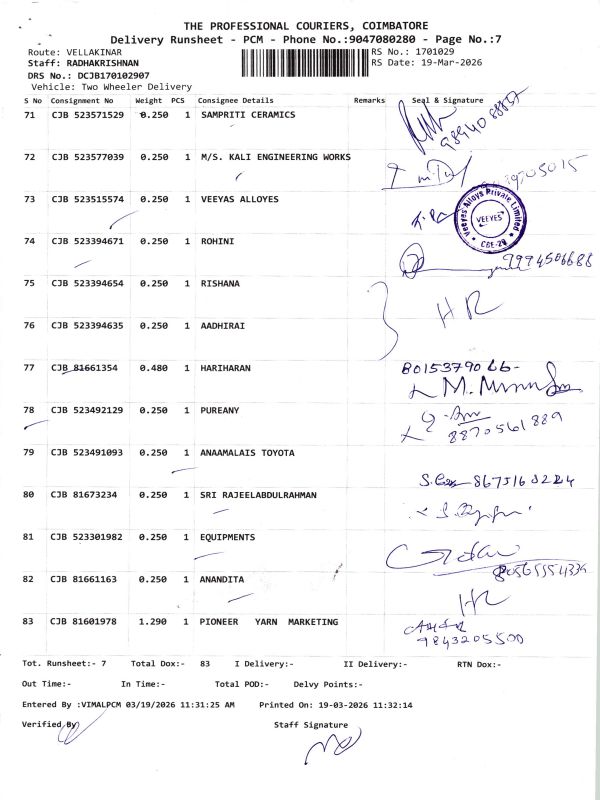 THE PROFESSIONAL COURIERS, COIMBATORE
Delivery Runsheet - PCM - Phone No.:9047080280 - Page No.:7
Route: VELLAKINAR
RS No.: 1701029
Staff: RADHAKRISHNAN
RS Date: 19-Mar-2026
DRS No.: DCJB170102907
Vehicle: Two Wheeler Delivery
S No Consignment No Weight PCS Consignee Details Remarks Seal & Signature
71 CJB 523571529 0.250 1 SAMPRITI CERAMICS
72 CJB 523577039 0.250 1 M/S. KALI ENGINEERING WORKS
73 CJB 523515574 0.250 1 VEEYAS ALLOYES
Veeyes Alloys Private Limited
VEEYES
74 CJB 523394671 0.250 1 ROHINI
9994506688
75 CJB 523394654 0.250 1 RISHANA
HR
76 CJB 523394635 0.250 1 AADHIRAI
77 CJB 81661354 0.480 1 HARIHARAN
78 CJB 523492129 0.250 1 PUREANY
8870561889
79 CJB 523491093 0.250 1 ANAAMALAIS TOYOTA
80 CJB 81673234 0.250 1 SRI RAJEELABDULRAHMAN
81 CJB 523301982 0.250 1 EQUIPMENTS
82 CJB 81661163 0.250 1 ANANDITA
HR
83 CJB 81601978 1.290 1 PIONEER YARN MARKETING
9843205500
Tot. Runsheet:- 7 Total Dox:- 83 I Delivery:- II Delivery:- RTN Dox:-
Out Time:- In Time:- Total POD:- Delvy Points:-
Entered By :VIMALPCM 03/19/2026 11:31:25 AM Printed On: 19-03-2026 11:32:14
Verified By
Staff Signature